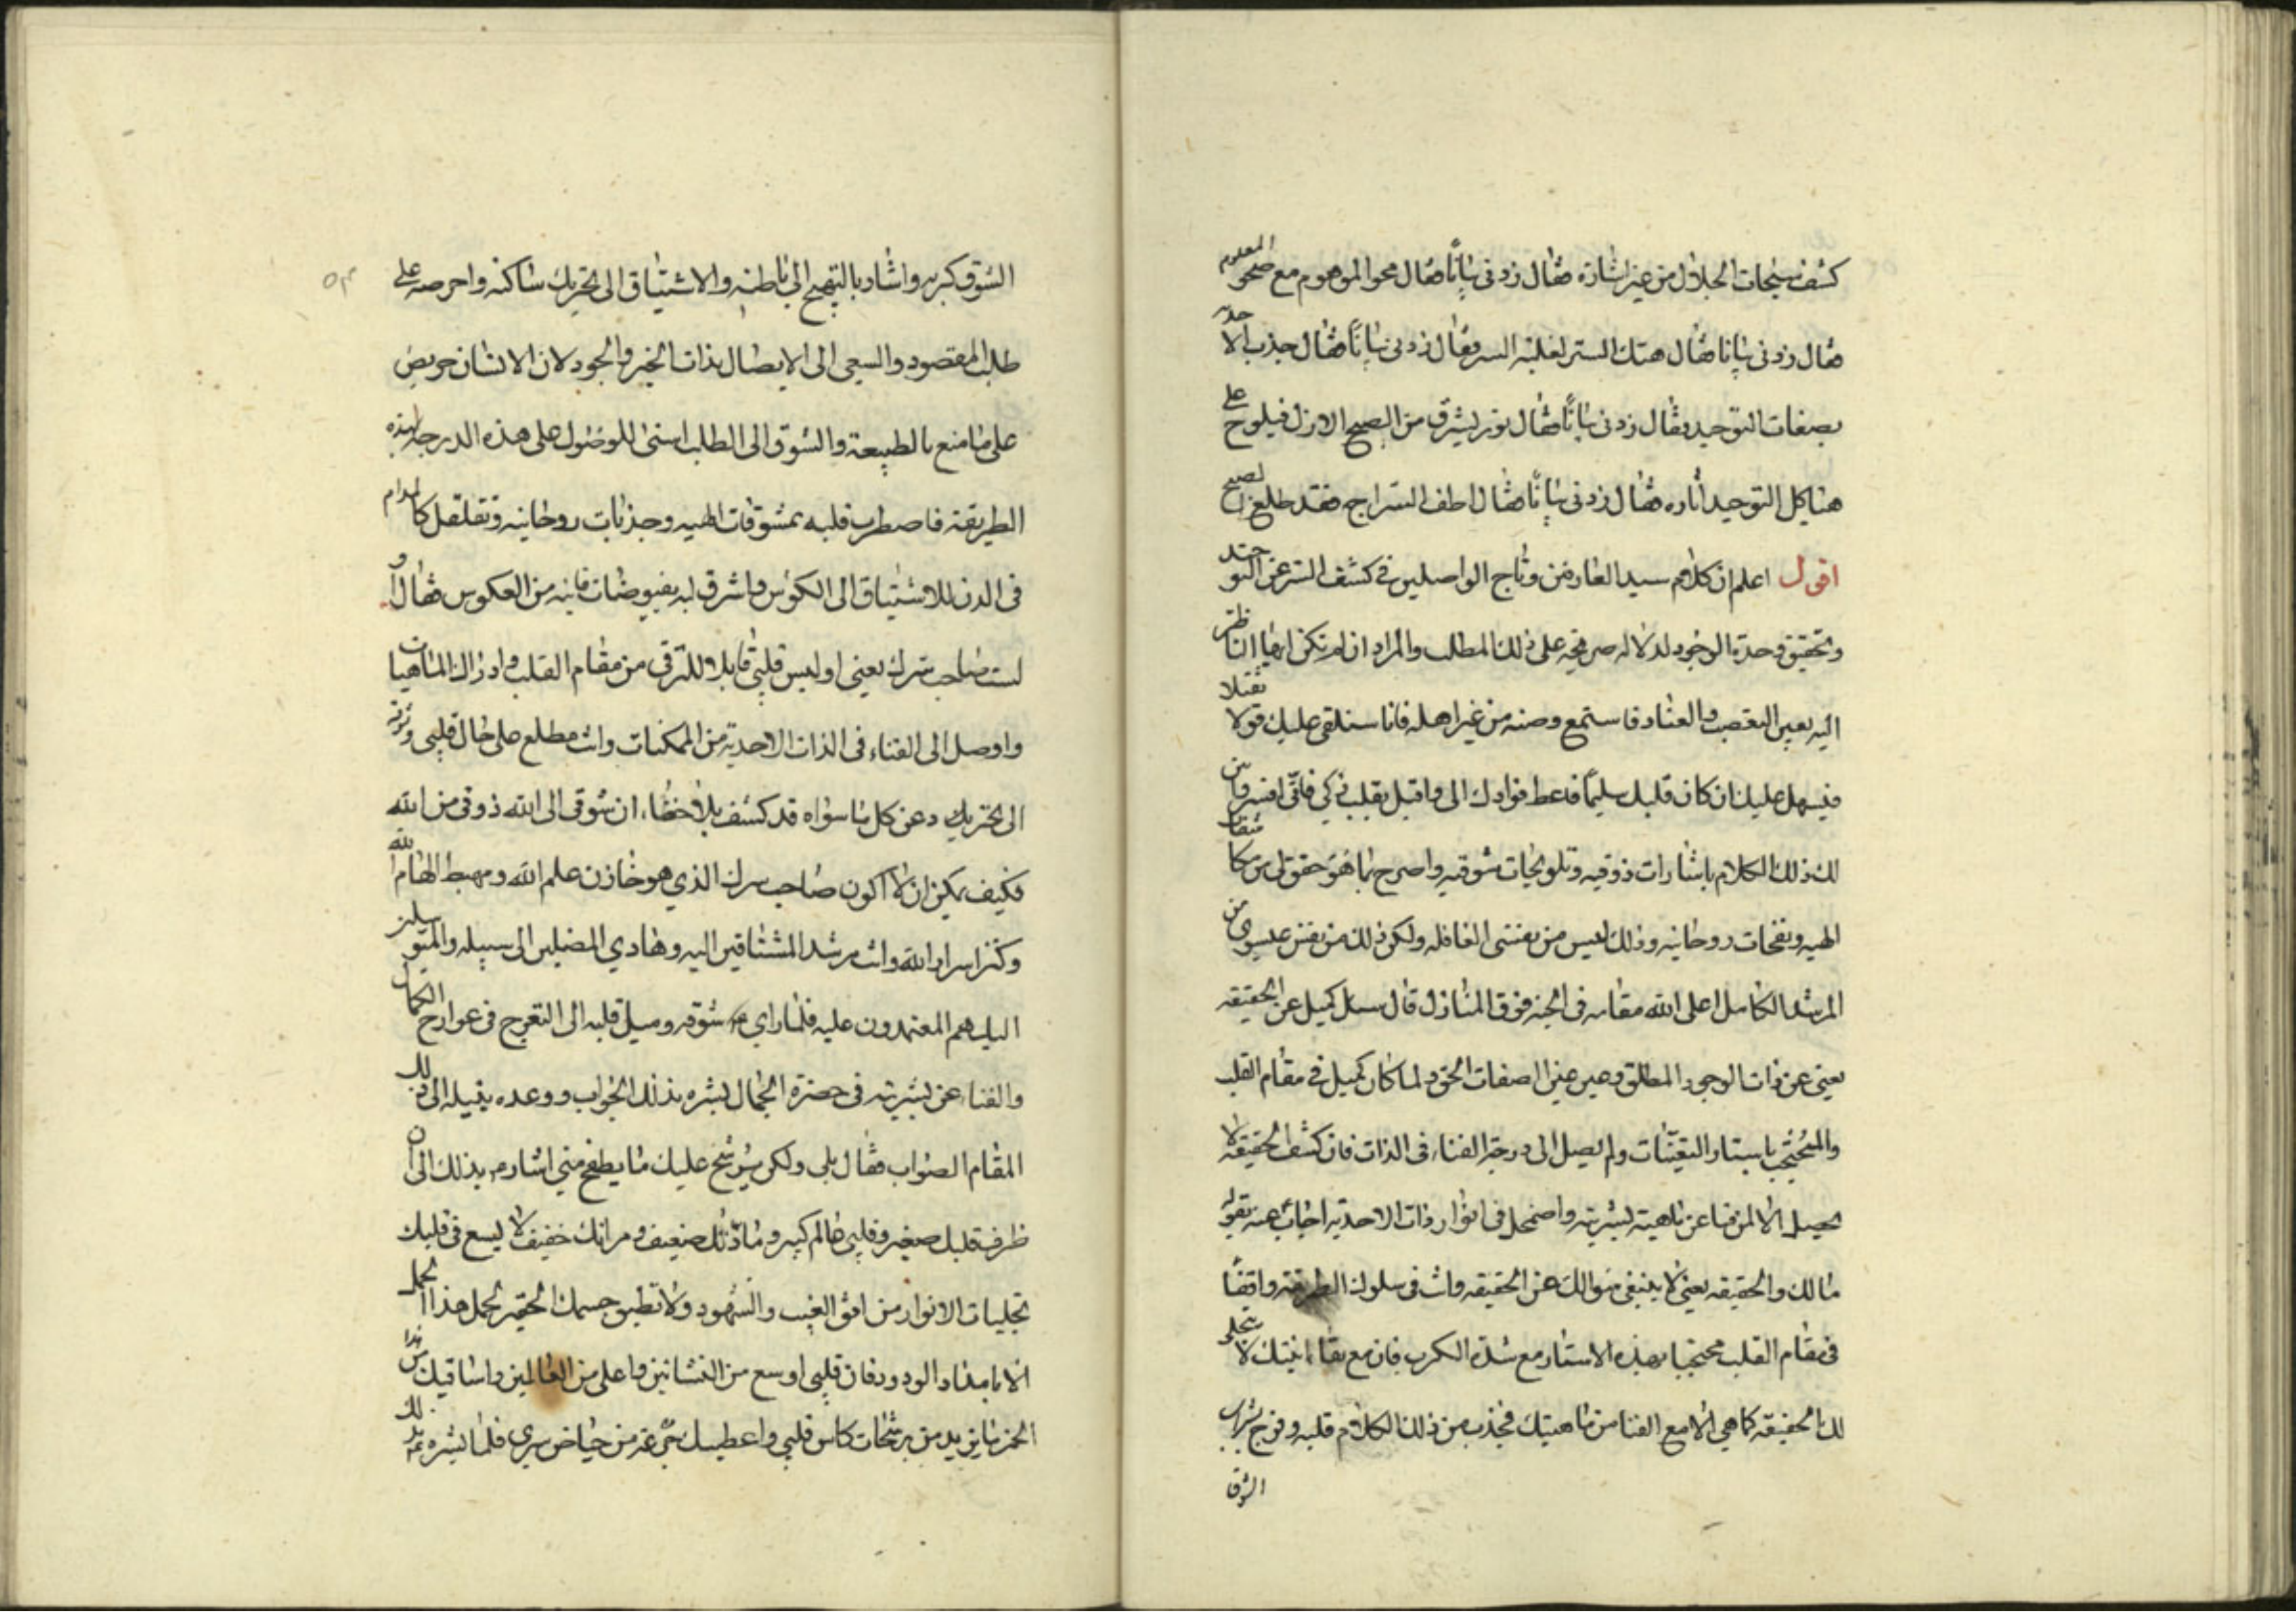 كشف سبحات الجلال من غير اشارة فقال زدنی بیانا فقال محو الموهوم مع صحو المعلوم
فقال زدنی بیانا فقال هتك الستر لغلبة السر فقال زدنی بیانا فقال جذب الاحدیه
بصفات التوحید فقال زدنی بیانا فقال نور یشرق من الصبح الازل فیلوح علی
هیاکل التوحید اثاره فقال زدنی بیانا فقال اطف السراج فقد طلع الصبح
اقول اعلم ان کلام سید العارفین وتاج الواصلین فی کشف الستر عن التوحید
وتحقیق وحدة الوجود لدلاله صریحه علی ذلك المطلب والمراد ان لم تکن ایها الناظر
الیه بعین التعصب والعناد فاستمع وصنه من غیر اهله فانا سنلقی علیك قولا ثقیلا
فیسهل علیك ان کان قلبك سلیما فاعط فؤادك الی واقبل بقلب زکی فانی افسر وابین
لك ذلك الکلام باشارات ذوقیه وتلویحات شوقیه واصرح بما هو حق
الهیه ونفحات روحانیه وذلك لیس من نفسی الغافله ولکن ذلك من نفس عیسوی من
المرشد الکامل اعلی الله مقامه فی الجنه فوق المنازل قال سئل کمیل عن الحقیقه
یعنی عن ذات الوجود المطلق وعین الصفات الحق ولما کان کمیل فی مقام القلب
والمحتجب باستار التعینات ولم یصل الی درجة الفناء فی الذات فان کشف الحقیقه لا
یحصل الا لمن فنا عن ماهیته بشریته واضمحل فی انوار ذات الاحدیه اجاب عنه بقوله
مالك والحقیقه یعنی لا ینبغی سوالك عن الحقیقه وانت فی سلوك الطریقه واقفا
فی مقام القلب محتجبا بهذه الاستار مع شدة الکرب فان مع بقاء انیتك لا یتجلی
لك الحقیقه کما هی الا مع الفنا من ماهیتك فجذب من ذلك الکلام قلبه ومزج بشراب
الشوق
الشوق کربه واشار بالتهیج الی باطنه والاشتیاق الی تحریك ساکنه واحرصه علی
طلب المقصود والسعی الی الایصال بذات الخیر والجود لان الانسان حریص
علی ما منع بالطبیعة والشوق الی الطلب اسنی للوصول علی هذه الدرجه لهذه
الطریقه فاضطرب قلبه بمشوقات الهیه وجذبات روحانیه وتقلقل کالمدام
فی الدن للاشتیاق الی الکؤس واشرق لبه بفیوضات فانیه من العکوس فقال او
لست صاحب سرك یعنی اولیس قلبی قابلا للترقی من مقام القلب وادراك الماهیات
واوصل الی الفناء فی الذات الاحدیة من الممکنات وانت مطلع علی حال قلبی وشوقه
الی تحریك وعن کل ما سواه قد کشف بلا خفاء ان شوقی الی الله ذوقی من الله
فکیف یمکن ان لا اکون صاحب سرك الذی هو خازن علم الله ومهبط الهام الله
وکنز اسرار الله وانت مرشد المشتاقین الیه وهادی المضلین الی سبیله والمتوسلین
الیك هم المعتمدون علیه فلما رای شوقه ومیل قلبه الی التعرج فی عوارج الکمال
والفناء عن بشریته فی حضرة الجمال بشره بذلك الجواب ووعده بنیله الی ذلك
المقام الصواب فقال بلی ولکن یرشح علیك ما یطفح منی اشاره بذلك الی ان
ظرف قلبك صغیر وقلبی عالم کبیر ومادتك ضعیف ومراتك خفیف لا یسع فی قلبك
تجلیات الانوار من افق الغیب والشهود ولا تطیق جسمك الحقیر لحمل هذا الحمل
الا بامداد الودود فان قلبی اوسع من النشأتین واعلی من العالمین واساقیك شرابا
الخمر مایزید من رشحات کاس قلبی واعطیك جرعه من حیاض سری فلما بشره بذلك